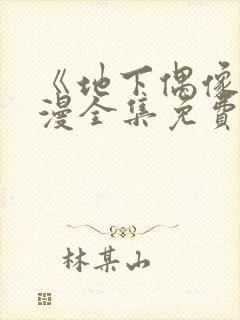 《地下偶像
漫全集免費
林某山